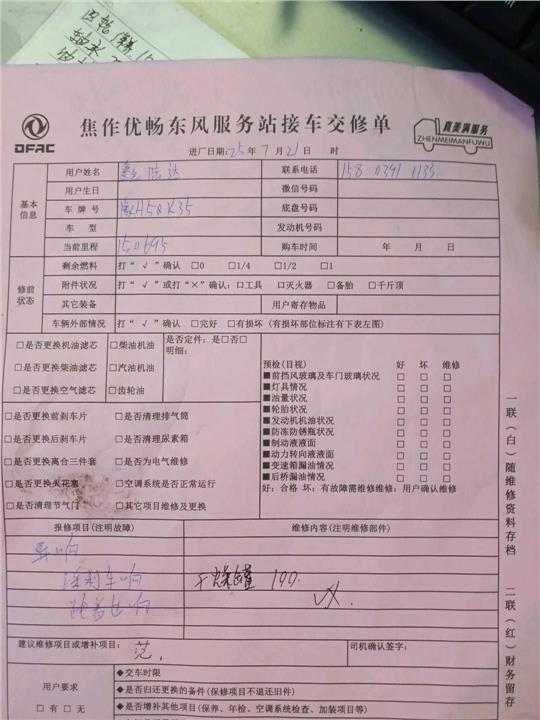 DFAC
焦作优畅东风服务站接车交修单
真美满服务
ZHENMEIMANFUWU
进厂日期:25年7月21日 时
基本信息
用户姓名
联系电话 158 0391 1133
用户生日 微信号码
车牌号 A50K35 底盘号码
车型 发动机号码
当前里程 150695 购车时间 年 月 日
修前状态
剩余燃料 打“√”确认 □0 □1/4 □1/2 □1
附件状况 打“√”或打“×”确认:□工具 □灭火器 □备胎 □千斤顶
其它装备 用户寄存物品
车辆外部情况 打“√”确认 □完好 □有损坏(有损坏部位标注有下表左图)
□是否更换机油滤芯 □柴油机油 是否定件:是□否□
明细:
□是否更换柴油滤芯 □汽油机油
□是否更换空气滤芯 □齿轮油
□是否更换前刹车片 □是否清理排气筒
□是否更换后刹车片 □是否清理尿素箱
□是否更换离合三件套 □是否为电气维修
□是否更换火花塞 □空调系统是否正常运行
□是否清理节气门 □其它项目维修及更换
预检(目视) 好 坏 维修
■前挡风玻璃及车门玻璃状况 □ □ □
■灯具情况 □ □ □
■油量状况 □ □ □
■轮胎状况 □ □ □
■发动机机油状况 □ □ □
■防冻防锈瓶状况 □ □ □
■制动液液面 □ □ □
■动力转向液液面 □ □ □
■变速箱漏油情况 □ □ □
■后桥漏油情况 □ □ □
好:合格 坏:有故障需维修维修:用户确认维修
报修项目(注明故障) 维修内容(注明维修部件)
异响
踩刹车响 干燥罐 190.
跑着也响
建议维修项目或增补项目: 司机确认签字:
用户要求
□有 □无
◆交车时限
◆是否归还更换的备件(保修项目不退还旧件)
◆是否增补其他项目(保养、年检、空调系统检查、加装项目等)
一联(白)随维修资料存档
二联(红)财务留存